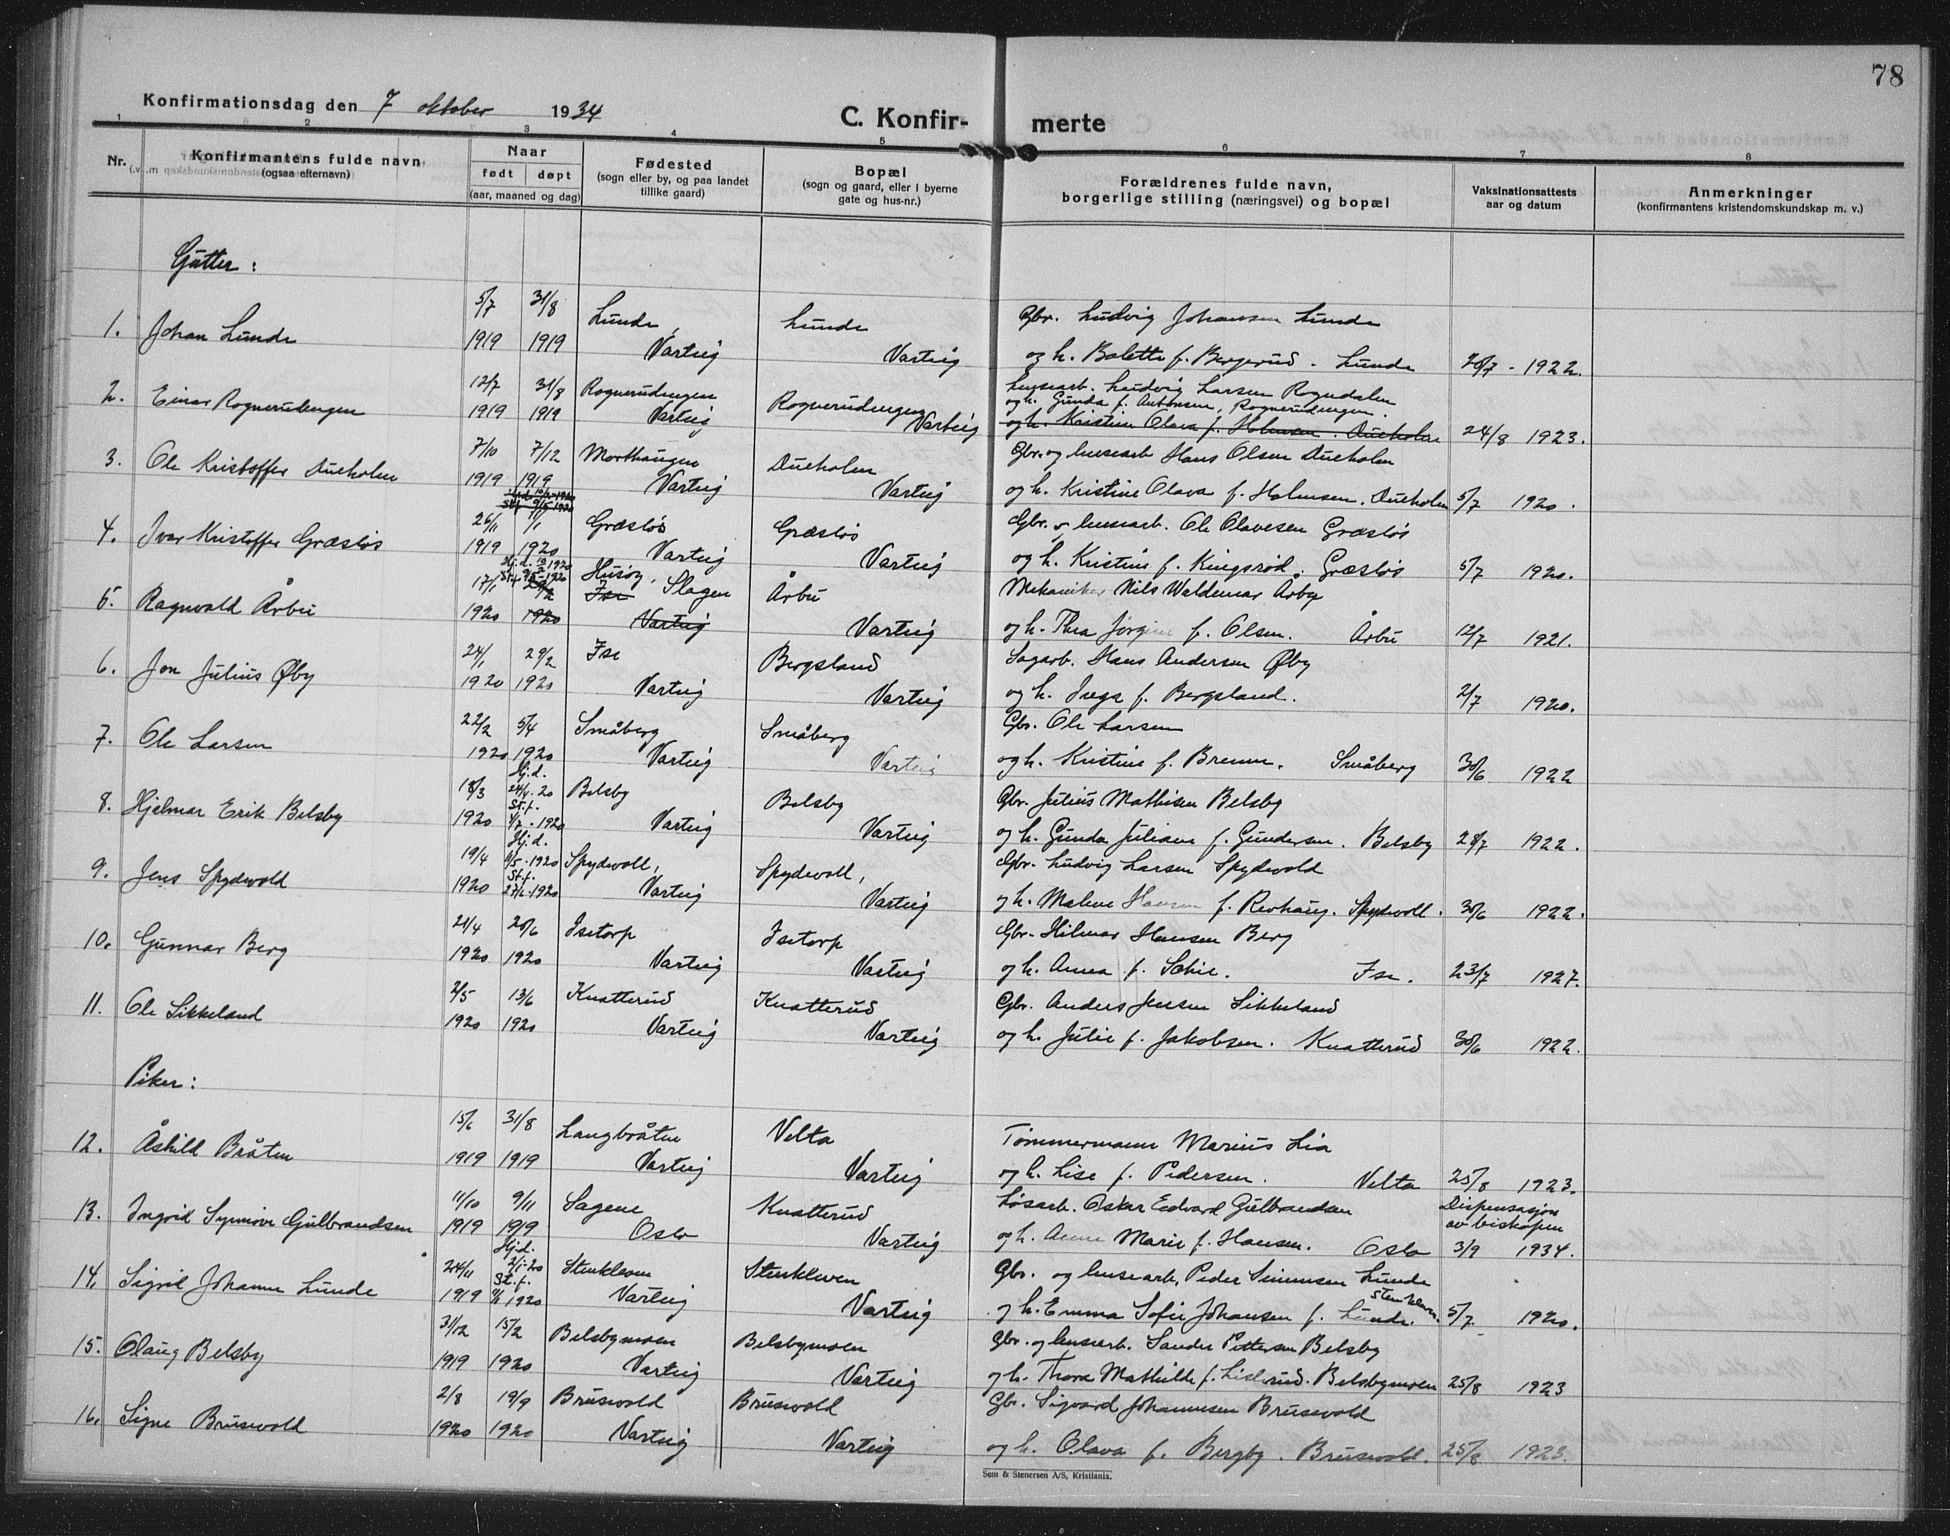 78
Konfirmationsdag den 7 oktober 1934
C. Konfir- merte
1 2 3 4 5 6 7 8
Nr. Konfirmantens fulde navn (ogsaa efternavn)
Naar født døpt (aar, maaned og dag)
Fødested (sogn eller by, og paa landet tillike gaard)
Bopæl (sogn og gaard, eller i byerne gate og hus-nr.)
Forældrenes fulde navn, borgerlige stilling (næringsvei) og bopæl
Vaksinationsattests aar og datum
Anmerkninger (konfirmantens kristendomskundskap m. v.)
Gutter:
1. Johan Lunde 5/7 1919 31/8 1919 Lunde, Varteig Lunde Varteig Gbr. Ludvig Johansen Lunde
og h. Bolette f. Bergerud. Lunde 20/7 - 1922.
2. Einar Rognerudengen 12/7 1919 31/8 1919 Rognerudengen Varteig Rognerudengen Varteig husarb. Ludvig Larsen Rogndalen
og h. Gunda f. Antonsen, Rognerudengen.
og h. Kristine Olava f. Holmsen. Dueholm 24/8 1923.
3. Ole Kristoffer Dueholm 7/10 1919 7/12 1919 Morthaugen Varteig Dueholm Varteig Gbr. og husarb Hans Olsen Dueholm
og h. Kristine Olava f. Holmsen. Dueholm 5/7 1920.
4. Ivar Kristoffer Græsløs 26/11 1919 1/1 1920 Græsløs Varteig Græsløs Varteig Gbr. og husarb. Ole Olavesen Græsløs
og h. Kristine f. Kingsrød. Græsløs 5/7 1920.
5. Ragnvald Årbu 17/1 1920 Hj.d. 10/2 1920 St.f. 9/5-1920 29/2 1920 Husøy, Slagen Ise Varteig Årbu Varteig Mekaniker Nils Waldemar Årby
og h. Thea Jørgine f. Olsen. Årbu 12/7 1921.
6. Jon Julius Øby 24/1 1920 29/2 1920 Ise Varteig Bergsland Varteig Sagarb. Hans Andersen Øby
og h. Inga f. Bergsland. " 2/7 1920.
7. Ole Larsen 22/2 1920 5/4 1920 Småberg Varteig Småberg Varteig Gbr. Ole Larsen
og h. Kristine f. Brenne. Småberg 30/6 1922
8. Hjelmar Erik Belsby 18/3 1920 Hj.d. 24/4-20 St.f. 4/7-1920 Belsby Varteig Belsby Varteig Gbr. Julius Mathisen Belsby
og h. Gunda Juliane f. Gundersen. Belsby 28/7 1922.
9. Jens Spydevold 19/4 1920 Hj.d. 9/5-1920 St.f. 27/6-1920 Spydevoll, Varteig Spydevoll, Varteig Gbr. Ludvig Larsen Spydevold
og h. Malene Hansen f. Revhaug. Spydevoll. 30/6 1922.
10. Gunnar Berg 21/4 1920 20/6 1920 Isetorp Varteig Isetorp Varteig Gbr. Hilmar Hansen Berg
og h. Anna f. Sælie. Ise. 23/7 1927.
11. Ole Sikkeland 2/5 1920 13/6 1920 Knatterud Varteig Knatterud Varteig Gbr. Anders Jensen Sikkeland
og h. Julie f. Jakobsen. Knatterud 30/6 1922.
Piker:
12. Åshild Bråten 15/6 1919 31/8 1919 Langbråten Varteig Velta Varteig Tømmermann Marius Lia
og h. Lise f. Pedersen. Velta 25/8 1923.
13. Ingrid Synnøve Gulbrandsen 11/10 1919 9/11 1919 Sagene Oslo Knatterud Varteig Løsarb. Oskar Edvard Gulbrandsen
og h. Anne Marie f. Hansen. Oslo Dispensasjon av biskopen 3/9 1934.
14. Sigrid Johanne Lunde 24/11 1919 Hj.d. 2/1-20 St.f. 1920 Stenkleven Varteig Stenkleven Varteig Gbr. og husarb. Peder Simensen Lunde
og h. Emma Sofie Johansen f. Lunde. Stenkleven. 5/7 1920.
15. Olaug Belsby 31/12 1919 15/2 1920 Belsbymoen Varteig Belsbymoen Varteig Gbr. og husarb. Sander Pettersen Belsby
og h. Thora Mathilde f. Lislerud. Belsbymoen 25/8 1923
16. Signe Brusevold 2/8 1920 19/9 1920 Brusevold Varteig Brusevold Varteig Gbr. Sigvard Johannesen Brusevold
og h. Olava f. Bergby. Brusevold. 25/8 1923.
Søm & Stenersen A/S, Kristiania.